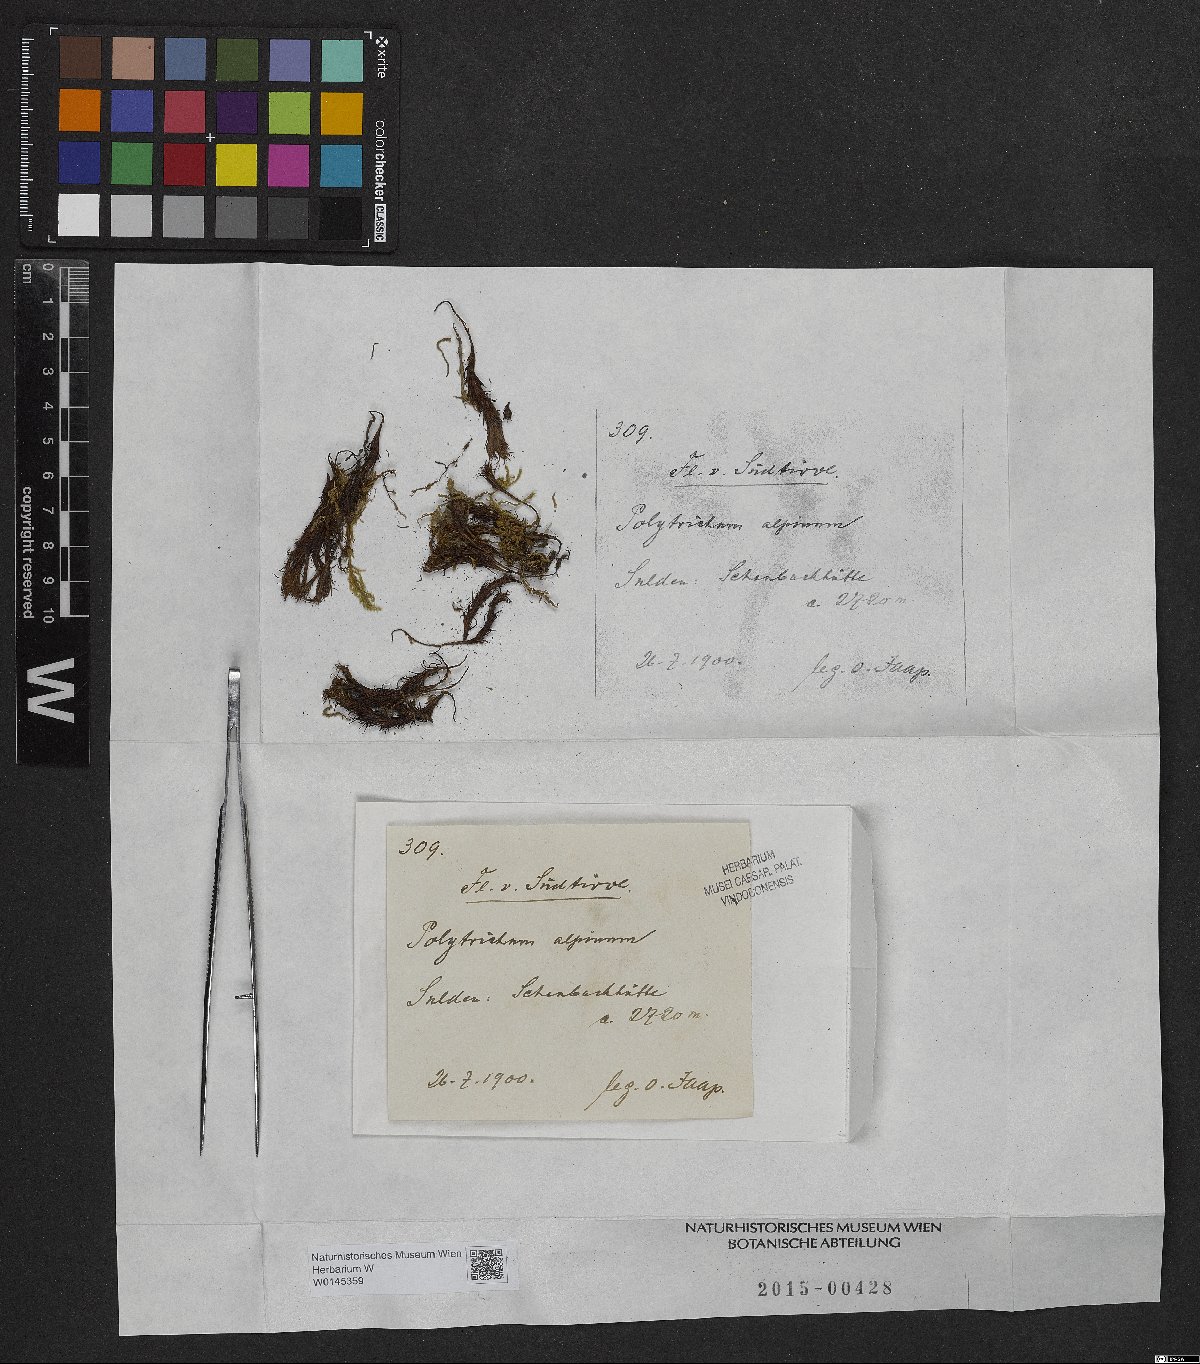 x-rite
colorchecker CLASSIC
cm
0 1 2 3 4 5 6 7 8 9 10
copyright reserved
W
309.
Fl. v. Südtirol.
Polytrichum alpinum
Sulden: Schaubachhütte
c. 2720 m
26.7.1900.
leg. O. Jaap.
309.
Fl. v. Südtirol.
Polytrichum alpinum
Sulden: Schaubachhütte
c. 2720 m.
26.7.1900.
leg. O. Jaap.
HERBARIUM
MUSEI CAESAR. PALAT.
VINDOBONENSIS
NATURHISTORISCHES MUSEUM WIEN
BOTANISCHE ABTEILUNG
Naturhistorisches Museum Wien
Herbarium W
W0145359
2015-00428